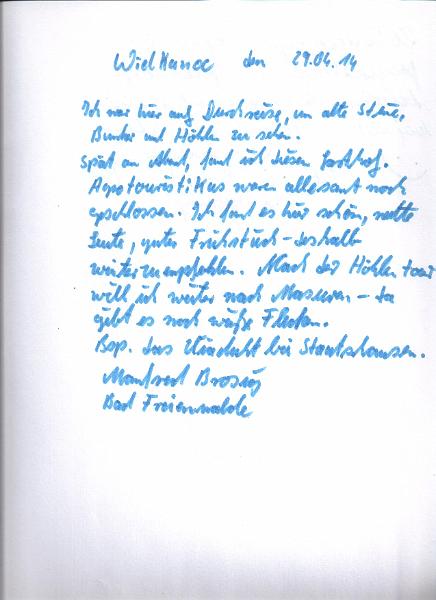 Wielkanoc den 29.04.14
Ich war hier auf Durchreise, um alte Steine,
Bunker und Höhlen zu sehen.
Spät am Abend, fand ich diesen Gasthof.
Agrotouristikus waren allesamt noch
geschlossen. Ich fand es hier schön, nette
Leute, gutes Frühstück – deshalb
weiterzuempfehlen. Nach der Höhlentour
will ich weiter nach Masuren – da
gibt es noch weiße Flecken.
Bsp. das
Manfred Brosig
Bad Freienwalde